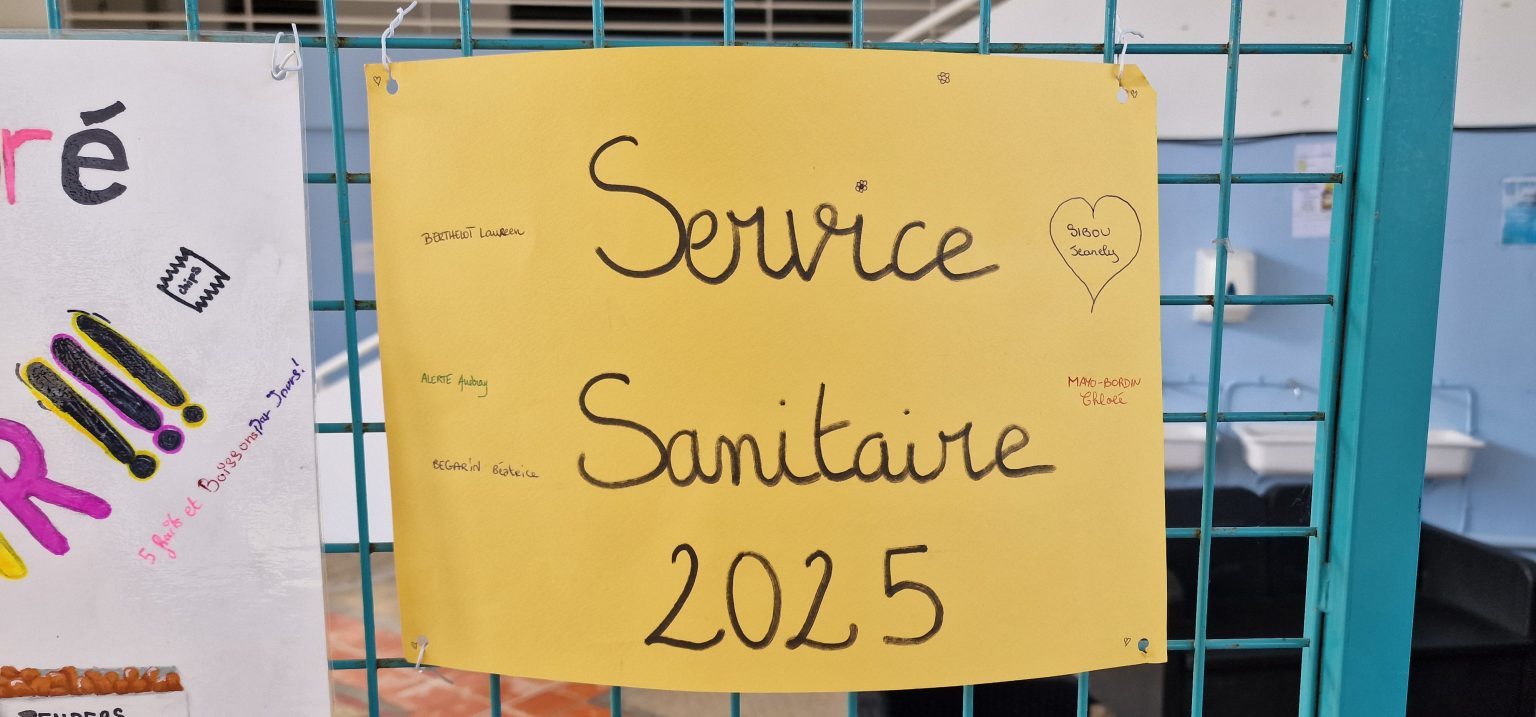 ré
chips
R!!!
5 fruits et Boissons par Jours!
TENDERS
Service
Sanitaire
2025
BERTHELOT Laureen
ALERTE Audray
BEGARIN Béatrice
SIBOU
Jeanely
MAYO-BORDIN
Chloée